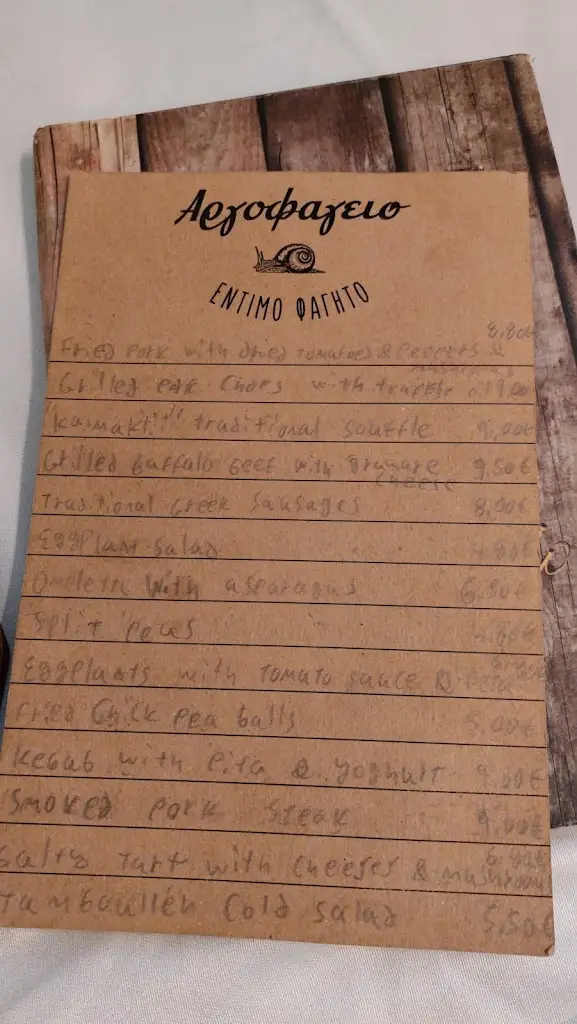 Αργοφαγειο
ΕΝΤΙΜΟ ΦΑΓΗΤΟ
Fried pork with dried tomatoes & peppers & 8.80€
Grilled pork chops with truffle oil
"Kaimaki" traditional souffle 9,00€
Grilled buffalo beef with gruyere cheese 9,50€
Traditional Greek sausages 8,00€
Eggplant salad 4.80€
Omelette with asparagus 6.80€
Split peas
Eggplants with tomato sauce & feta
Fried chick pea balls 5,00€
Kebab with pita & yoghurt 9,00€
Smoked pork steak 9,00€
Salty tart with cheeses & mushroom 6.80€
Tamboulleh cold salad 5,50€